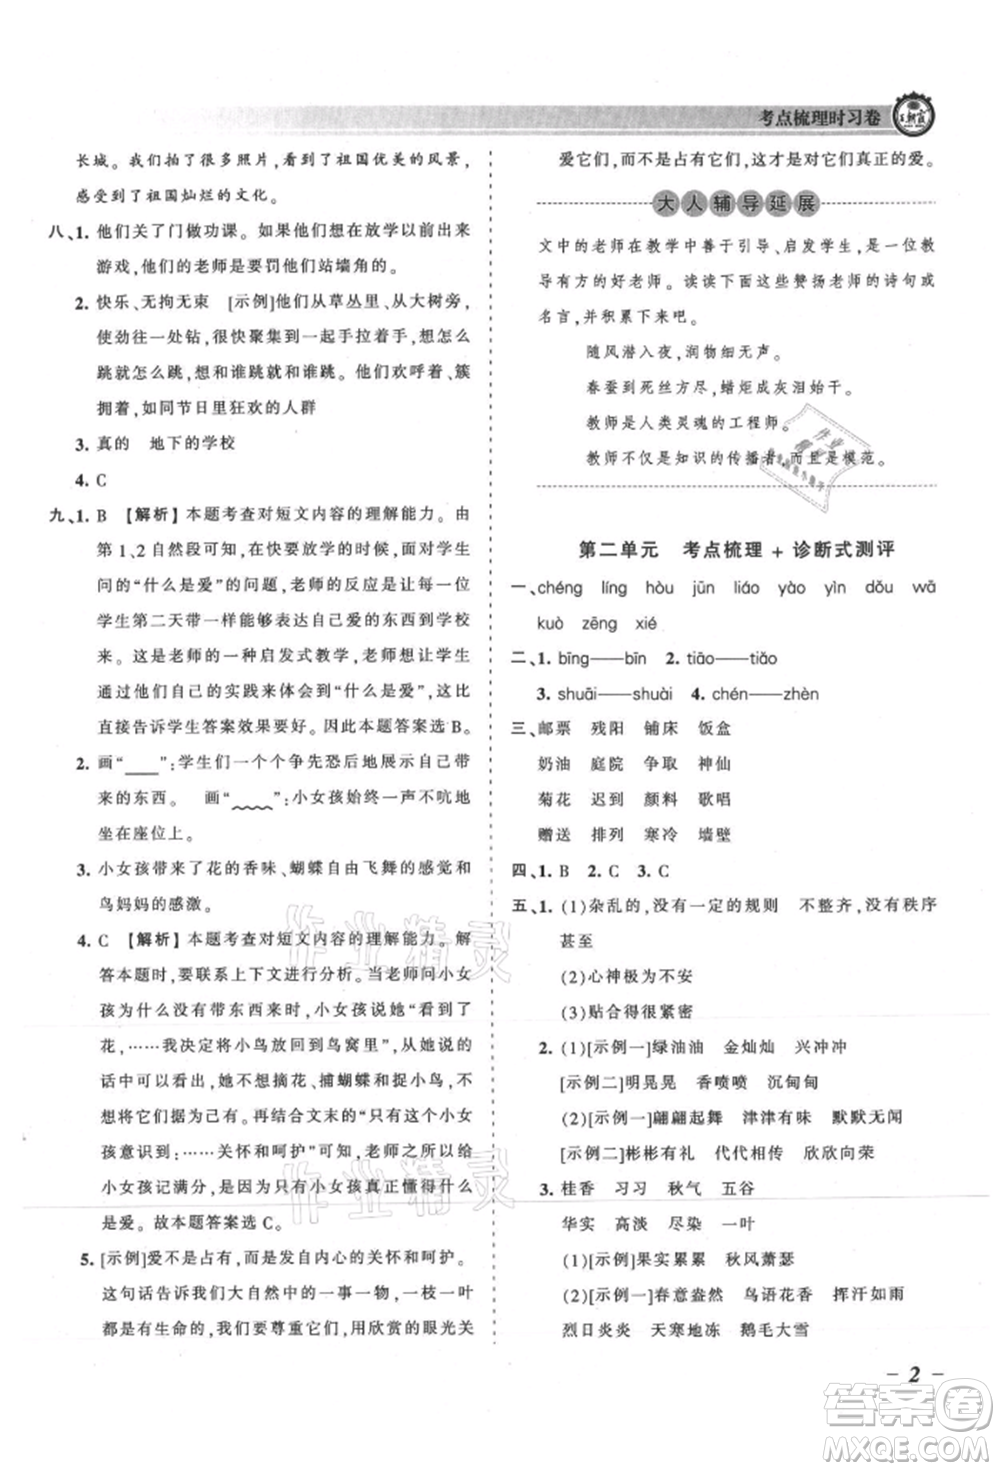 考点梳理时习卷
王朝霞
长城。我们拍了很多照片,看到了祖国优美的风景,
感受到了祖国灿烂的文化。
八、1. 他们关了门做功课。如果他们想在放学前出来
游戏,他们的老师是要罚他们站墙角的。
2. 快乐、无拘无束 [示例]他们从草丛里、大树旁,
使劲往一处钻,很快聚集到一起手拉着手,想怎么
跳就怎么跳,想和谁跳就和谁跳。他们欢呼着、簇
拥着,如同节日里狂欢的人群
3. 真的 地下的学校
4. C
九、1. B 【解析】本题考查对短文内容的理解能力。由
第1、2自然段可知,在快要放学的时候,学生提出
的“什么是爱”的问题,老师的反应是让提问题的
学生第二天带一样能够表达自己爱的东西到学校
来。这是老师的一种启发式教学,意在让学生通
过他们自己的实践来体会到“什么是爱”,这比
直接告诉学生答案效果要好。因此本题答案选B。
2. 画“____”:学生们一个个争先恐后地展示自己带
来的东西。 画“﹏﹏”:小女孩始终一声不吭地
坐在座位上。
3. 小女孩带来了花的香味、蝴蝶自由飞舞的感觉和
鸟妈妈的感激。
4. C 【解析】本题考查对短文内容的理解能力。解
答本题时,要联系上下文进行分析。当老师问小女
孩为什么没有带东西来时,小女孩说她“看到了
花,……我决定将小鸟放回到鸟窝里”,从她说的
话中可以看出,她不愿摘花、捕蝴蝶和捉小鸟,也
就是不将它们据为己有。再结合文末的“只有小女
孩意识到:……关怀和呵护”可知,老师之所以给
小女孩记满分,是因为只有小女孩真正懂得了什么
是爱。故本题答案选C。
5. [示例]爱不是占有,而是发自内心的关怀和呵护。
这句话告诉我们大自然的一事一物,一枝一叶
都是有生命的,我们要尊重它们,用欣赏的眼光关
爱它们,而不是占有它们,这才是对它们真正的爱。
大人辅导延展
文中的老师在教学中善于引导、启发学生,是一位教
导有方的好老师。读读下面这些赞扬老师的诗句或
名言,并积累下来吧。
随风潜入夜,润物细无声。
春蚕到死丝方尽,蜡炬成灰泪始干。
教师是人类灵魂的工程师。
教师不仅是知识的传播者,而且是模范。
第二单元 考点梳理 + 诊断式测评
一、chéng líng hòu jūn liáo yào yìn dǒu wā
kuò zēng xié
二、1. bīng——bīn 2. tiāo——tiǎo
3. shuāi——shuài 4. chén——zhèn
三、邮票 残阳 铺床 饭盒
奶油 庭院 争取 神仙
菊花 迟到 颜料 歌唱
赠送 排列 寒冷 墙壁
四、1. B 2. C 3. C
五、1. (1)杂乱的,没有一定的规则 不整齐,没有秩序
甚至
(2)心神极为不安
(3)贴合得很紧密
2. (1)[示例一]绿油油 金灿灿 兴冲冲
[示例二]明晃晃 香喷喷 沉甸甸
(2)[示例一]翩翩起舞 津津有味 默默无闻
[示例二]彬彬有礼 代代相传 欣欣向荣
3. 桂香 习习 秋气 五谷
华实 高淡 尽染 一叶
(1)[示例]果实累累 秋风萧瑟
(2)[示例一]春意盎然 鸟语花香 挥汗如雨
烈日炎炎 天寒地冻 鹅毛大雪
作业精灵
作业精灵
— 2 —
答案圈
MXQE.COM